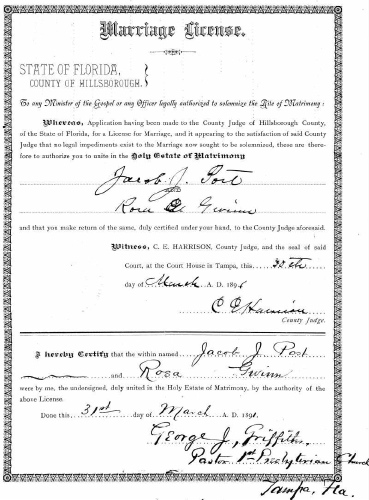 Marriage License.
STATE OF FLORIDA,
COUNTY OF HILLSBOROUGH.
To any Minister of the Gospel or any Officer legally authorized to solemnize the Rite of Matrimony:
Whereas, Application having been made to the County Judge of Hillsborough County,
of the State of Florida, for a License for Marriage, and it appearing to the satisfaction of said County
Judge that no legal impediments exist to the Marriage now sought to be solemnized, these are there-
fore to authorize you to unite in the Holy Estate of Matrimony
Jacob J. Post
and
Rosa Gwinn
and that you make return of the same, duly certified under your hand, to the County Judge aforesaid.
Witness, C. E. HARRISON, County Judge, and the seal of said
Court, at the Court House in Tampa, this
day of March A. D. 1891
C E Harrison
County Judge.
I hereby Certify that the within named Jacob J. Post
and Rosa Gwinn
were by me, the undersigned, duly united in the Holy Estate of Matrimony, by the authority of the
above License.
Done this 31st day of March A. D. 1891.
George J. Griffiths.
Pastor 1st Presbyterian Church
Tampa, Fla.